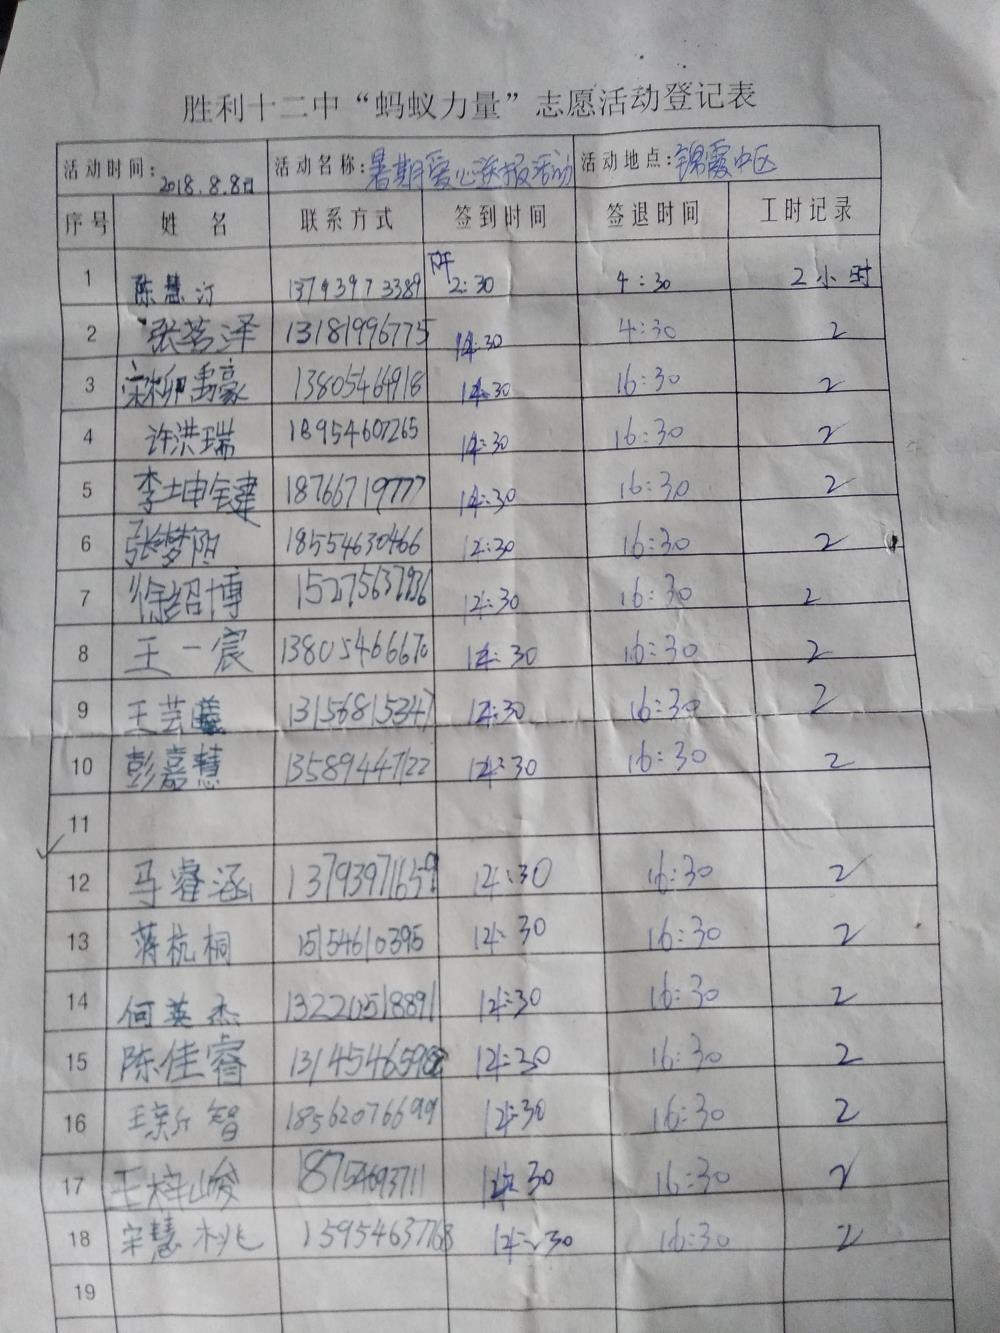 胜利十二中“蚂蚁力量”志愿活动登记表
活动时间: 2018.8.8日 活动名称: 暑期爱心送报活动 活动地点: 锦霞小区
序号 姓名 联系方式 签到时间 签退时间 工时记录
1 陈慧汀 13793973389 下午2:30 4:30 2小时
2 张茗泽 13181996775 14:30 4:30 2
3 宋柳禹豪 13805464918 14:30 16:30 2
4 许洪瑞 18954607265 14:30 16:30 2
5 李坤键 18766719777 14:30 16:30 2
6 张梦阳 18554630466 14:30 16:30 2
7 徐绍博 15275637936 14:30 16:30 2
8 王一宸 13805466670 14:30 16:30 2
9 王芸 13156815347 14:30 16:30 2
10 彭嘉慧 13589447122 14:30 16:30 2
11
12 马睿涵 13793971659 14:30 16:30 2
13 蒋杭桐 15154610395 14:30 16:30 2
14 何英杰 13220518891 14:30 16:30 2
15 陈佳睿 14:30 16:30 2
16 王新智 18562076699 14:30 16:30 2
17 王梓峻 18754693711 14:30 16:30 2
18 宋慧桃 15954637768 14:30 16:30 2
19